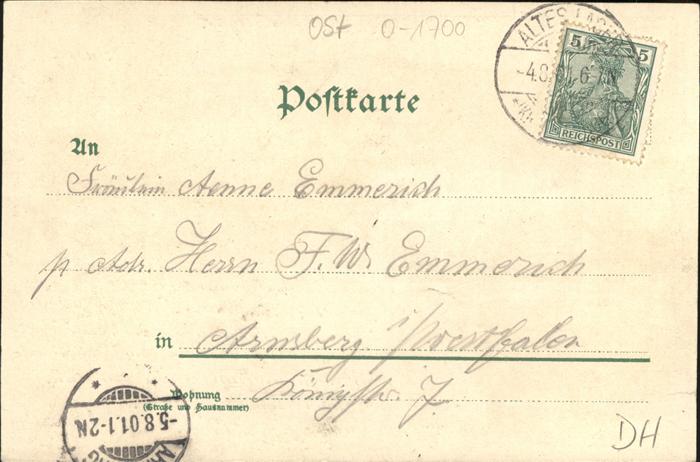 OST 0-1700
ALTES LAGER
5 5
-4.8. 6-7N
REICHSPOST
Postkarte
An
Fräulein Aenne Emmerich
p Adr. Herrn F. W. Emmerich
in Arnsberg i/Westfalen
Wohnung Königstr. 7
(Straße und Hausnummer)
-5.8.01.1-2N
DH